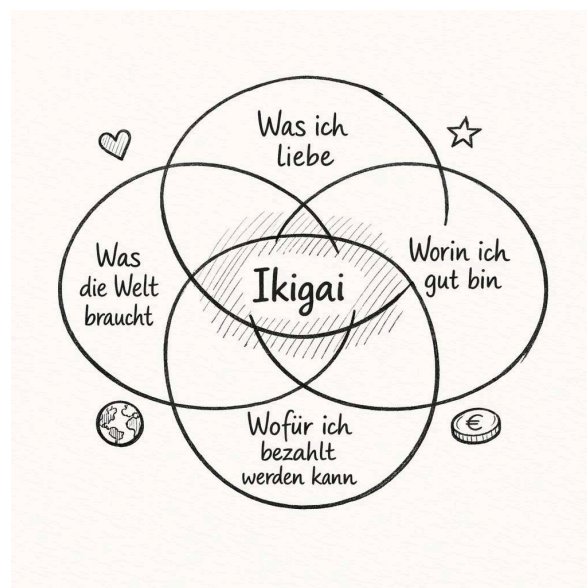 Was ich
liebe
Was
die Welt
braucht
Worin ich
gut bin
Ikigai
Wofür ich
bezahlt
werden kann
€